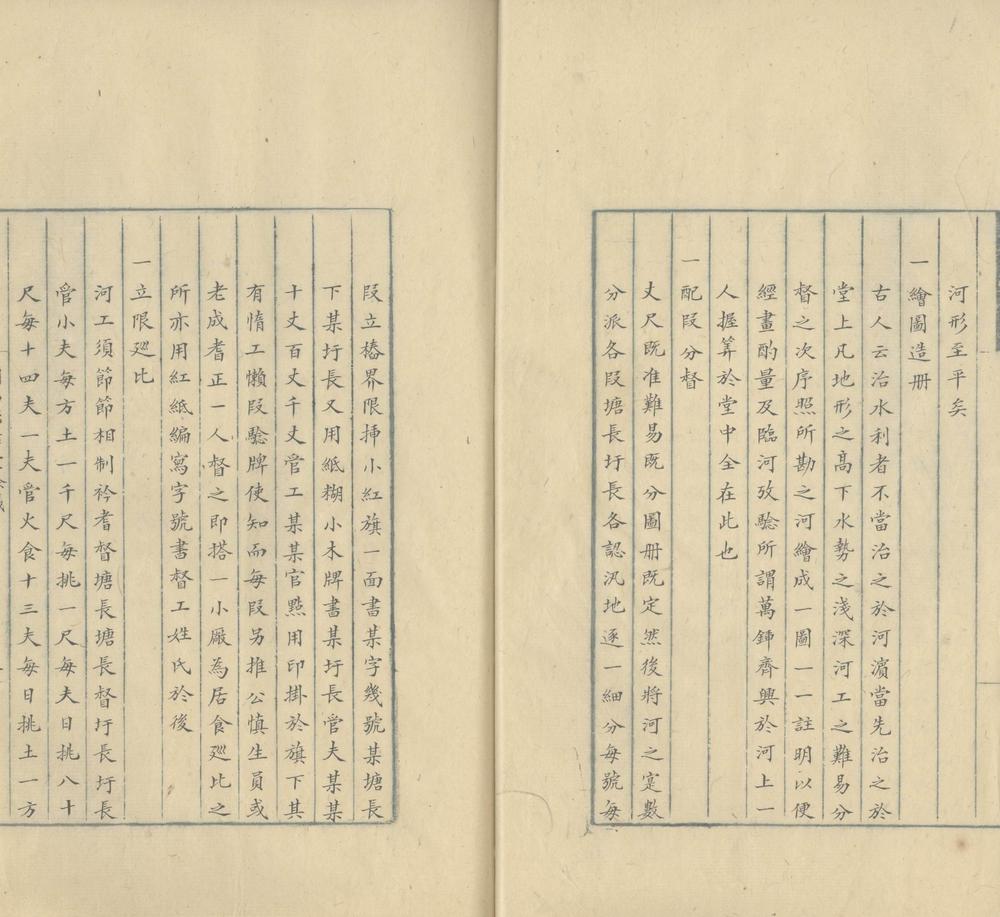 河形至平矣
一繪圖造册
古人云治水利者不當治之於河濵當先治之於
堂上凡地形之高下水勢之淺深河工之難易分
督之次序照所勘之河繪成一圖一一註明以便
經畫酌量及臨河攷驗所謂萬鍤齊興於河上一
人握筭於堂中全在此也
一配叚分督
丈尺既准難易既分圖册既定然後將河之寔數
分派各叚塘長圩長各認汛地逐一細分每號每
叚立樁界限揷小紅旗一面書某字幾號某塘長
下某圩長又用紙糊小木牌書某圩長管夫某某
十丈百丈千丈管工某某官㸃用印掛於旗下其
有惰工懶叚騐牌使知而每叚另推公慎生員或
老成耆正一人督之即搭一小厰為居食廵比之
所亦用紅紙編寫字號書督工姓氏於後
一立限廵比
河工須節節相制衿耆督塘長塘長督圩長圩長
管小夫每方土一千尺每挑一尺每夫日挑八十
尺每十四夫一夫管火食十三夫每日挑土一方